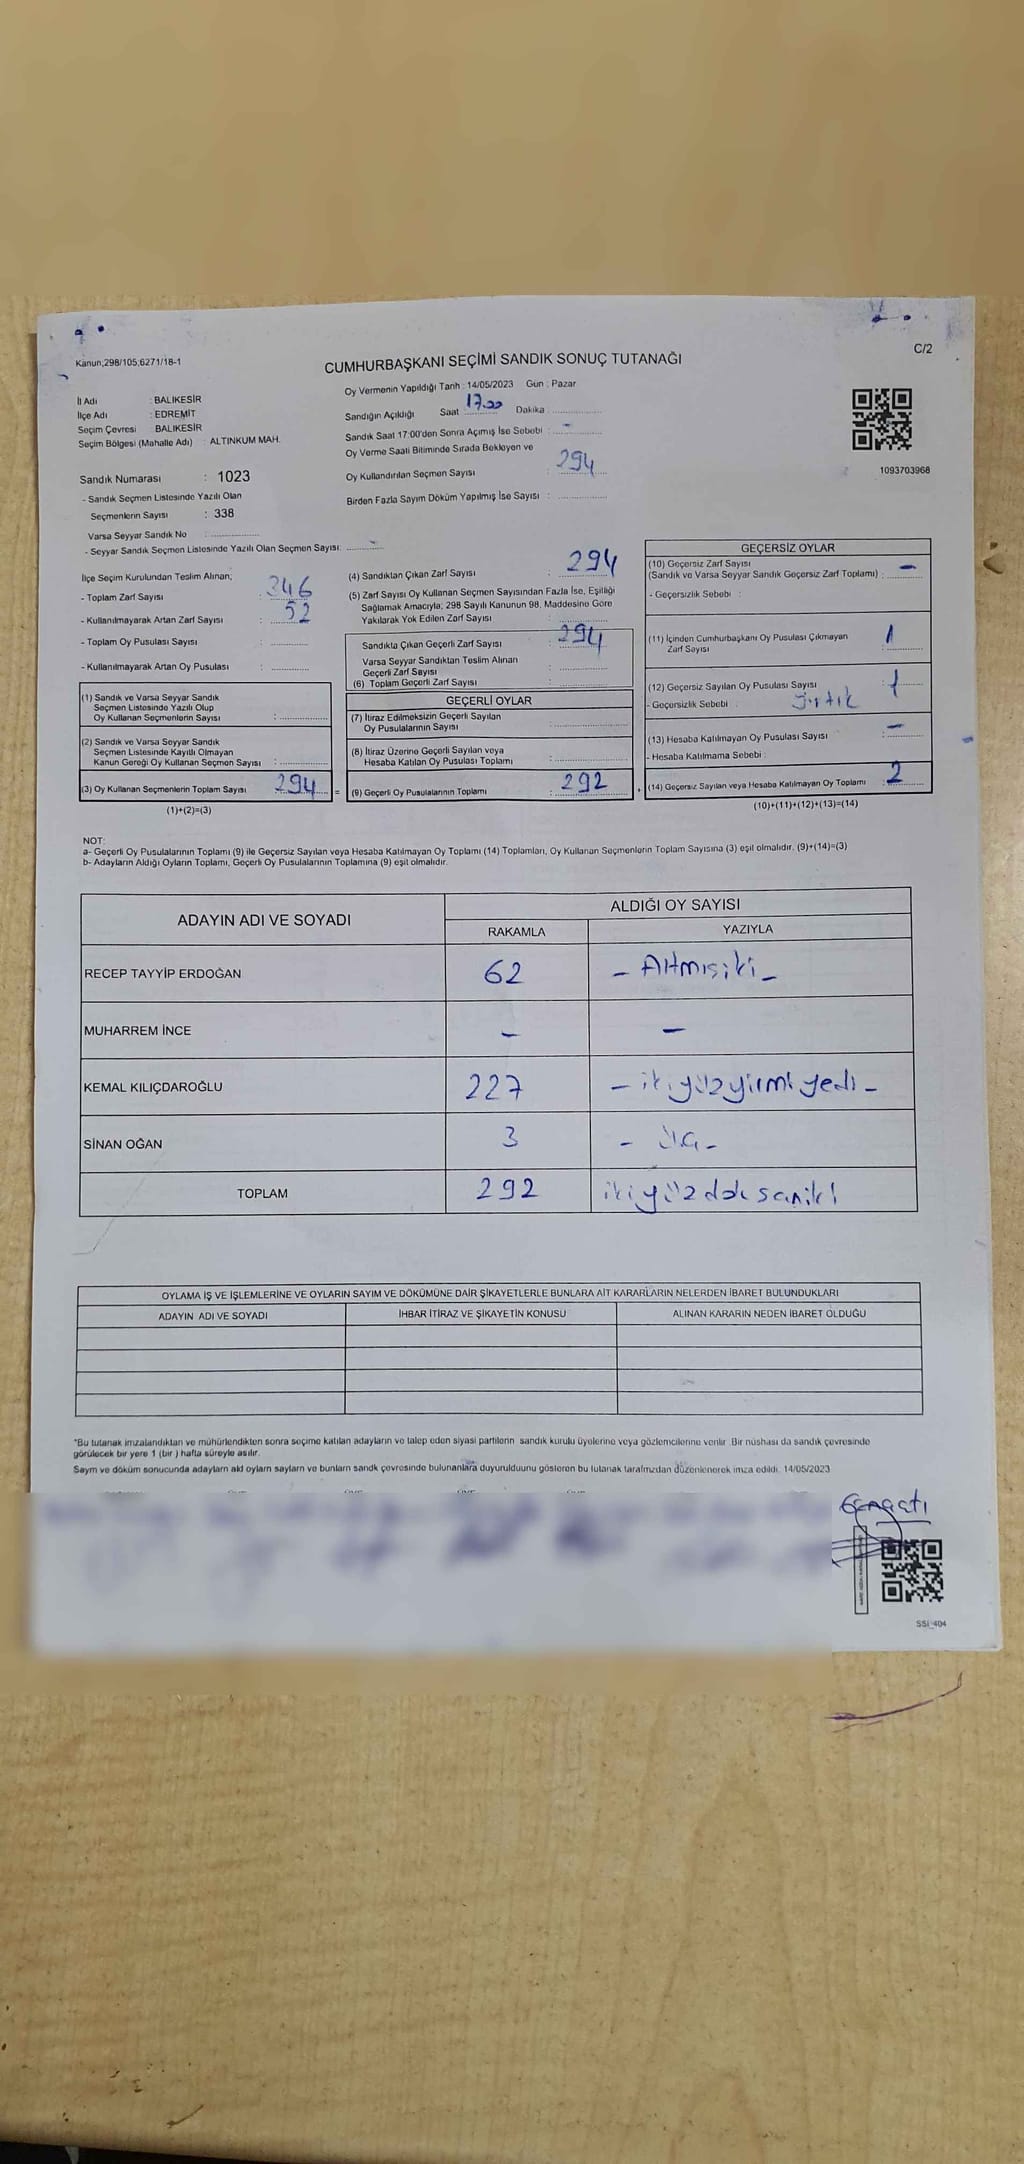 Kanun;298/105;6271/18-1
C/2
CUMHURBAŞKANI SEÇİMİ SANDIK SONUÇ TUTANAĞI
İl Adı : BALIKESİR
İlçe Adı : EDREMİT
Seçim Çevresi : BALIKESİR
Seçim Bölgesi (Mahalle Adı) : ALTINKUM MAH.
Sandık Numarası : 1023
- Sandık Seçmen Listesinde Yazılı Olan
Seçmenlerin Sayısı : 338
Varsa Seyyar Sandık No :
- Seyyar Sandık Seçmen Listesinde Yazılı Olan Seçmen Sayısı: -
Oy Vermenin Yapıldığı Tarih : 14/05/2023 Gün : Pazar
Sandığın Açıldığı Saat : 17.00 Dakika :
Sandık Saat 17:00'den Sonra Açımış İse Sebebi : -
Oy Verme Saati Bitiminde Sırada Bekleyen ve
Oy Kullandırılan Seçmen Sayısı : 294
Birden Fazla Sayım Döküm Yapılmış İse Sayısı :
1093703968
İlçe Seçim Kurulundan Teslim Alınan;
- Toplam Zarf Sayısı : 346
- Kullanılmayarak Artan Zarf Sayısı : 52
- Toplam Oy Pusulası Sayısı :
- Kullanılmayarak Artan Oy Pusulası :
(1) Sandık ve Varsa Seyyar Sandık
Seçmen Listesinde Yazılı Olup
Oy Kullanan Seçmenlerin Sayısı :
(2) Sandık ve Varsa Seyyar Sandık
Seçmen Listesinde Kayıtlı Olmayan
Kanun Gereği Oy Kullanan Seçmen Sayısı :
(3) Oy Kullanan Seçmenlerin Toplam Sayısı : 294 =
(1)+(2)=(3)
(4) Sandıktan Çıkan Zarf Sayısı : 294
(5) Zarf Sayısı Oy Kullanan Seçmen Sayısından Fazla İse, Eşitliği
Sağlamak Amacıyla; 298 Sayılı Kanunun 98. Maddesine Göre
Yakılarak Yok Edilen Zarf Sayısı :
Sandıkta Çıkan Geçerli Zarf Sayısı : 294
Varsa Seyyar Sandıktan Teslim Alınan
Geçerli Zarf Sayısı :
(6) Toplam Geçerli Zarf Sayısı :
GEÇERLİ OYLAR
(7) İtiraz Edilmeksizin Geçerli Sayılan
Oy Pusulalarının Sayısı :
(8) İtiraz Üzerine Geçerli Sayılan veya
Hesaba Katılan Oy Pusulası Toplamı :
(9) Geçerli Oy Pusulalarının Toplamı : 292
GEÇERSİZ OYLAR
(10) Geçersiz Zarf Sayısı
(Sandık ve Varsa Seyyar Sandık Geçersiz Zarf Toplamı) : -
- Geçersizlik Sebebi :
(11) İçinden Cumhurbaşkanı Oy Pusulası Çıkmayan
Zarf Sayısı : 1
(12) Geçersiz Sayılan Oy Pusulası Sayısı : 1
- Geçersizlik Sebebi : yırtık
(13) Hesaba Katılmayan Oy Pusulası Sayısı : -
- Hesaba Katılmama Sebebi :
(14) Geçersiz Sayılan veya Hesaba Katılmayan Oy Toplamı : 2
(10)+(11)+(12)+(13)=(14)
NOT:
a- Geçerli Oy Pusulalarının Toplamı (9) ile Geçersiz Sayılan veya Hesaba Katılmayan Oy Toplamı (14) Toplamları, Oy Kullanan Seçmenlerin Toplam Sayısına (3) eşit olmalıdır. (9)+(14)=(3)
b- Adayların Aldığı Oyların Toplamı, Geçerli Oy Pusulalarının Toplamına (9) eşit olmalıdır.
ADAYIN ADI VE SOYADI ALDIĞI OY SAYISI
RAKAMLA YAZIYLA
RECEP TAYYİP ERDOĞAN 62 - Altmışiki -
MUHARREM İNCE - -
KEMAL KILIÇDAROĞLU 227 - ikiyüzyirmiyedi -
SİNAN OĞAN 3 - üç -
TOPLAM 292 ikiyüzdoksaniki
OYLAMA İŞ VE İŞLEMLERİNE VE OYLARIN SAYIM VE DÖKÜMÜNE DAİR ŞİKAYETLERLE BUNLARA AİT KARARLARIN NELERDEN İBARET BULUNDUKLARI
ADAYIN ADI VE SOYADI İHBAR İTİRAZ VE ŞİKAYETİN KONUSU ALINAN KARARIN NEDEN İBARET OLDUĞU
*Bu tutanak imzalandıktan ve mühürlendikten sonra seçime katılan adayların ve talep eden siyasi partilerin sandık kurulu üyelerine veya gözlemcilerine verilir. Bir nüshası da sandık çevresinde
görülecek bir yere 1 (bir ) hafta süreyle asılır.
Saym ve döküm sonucunda adaylarn ald oylarn saylarn ve bunlarn sandk çevresinde bulunanlara duyurulduunu gösteren bu tutanak tarafmzdan düzenlenerek imza edildi. 14/05/2023
SSI_404